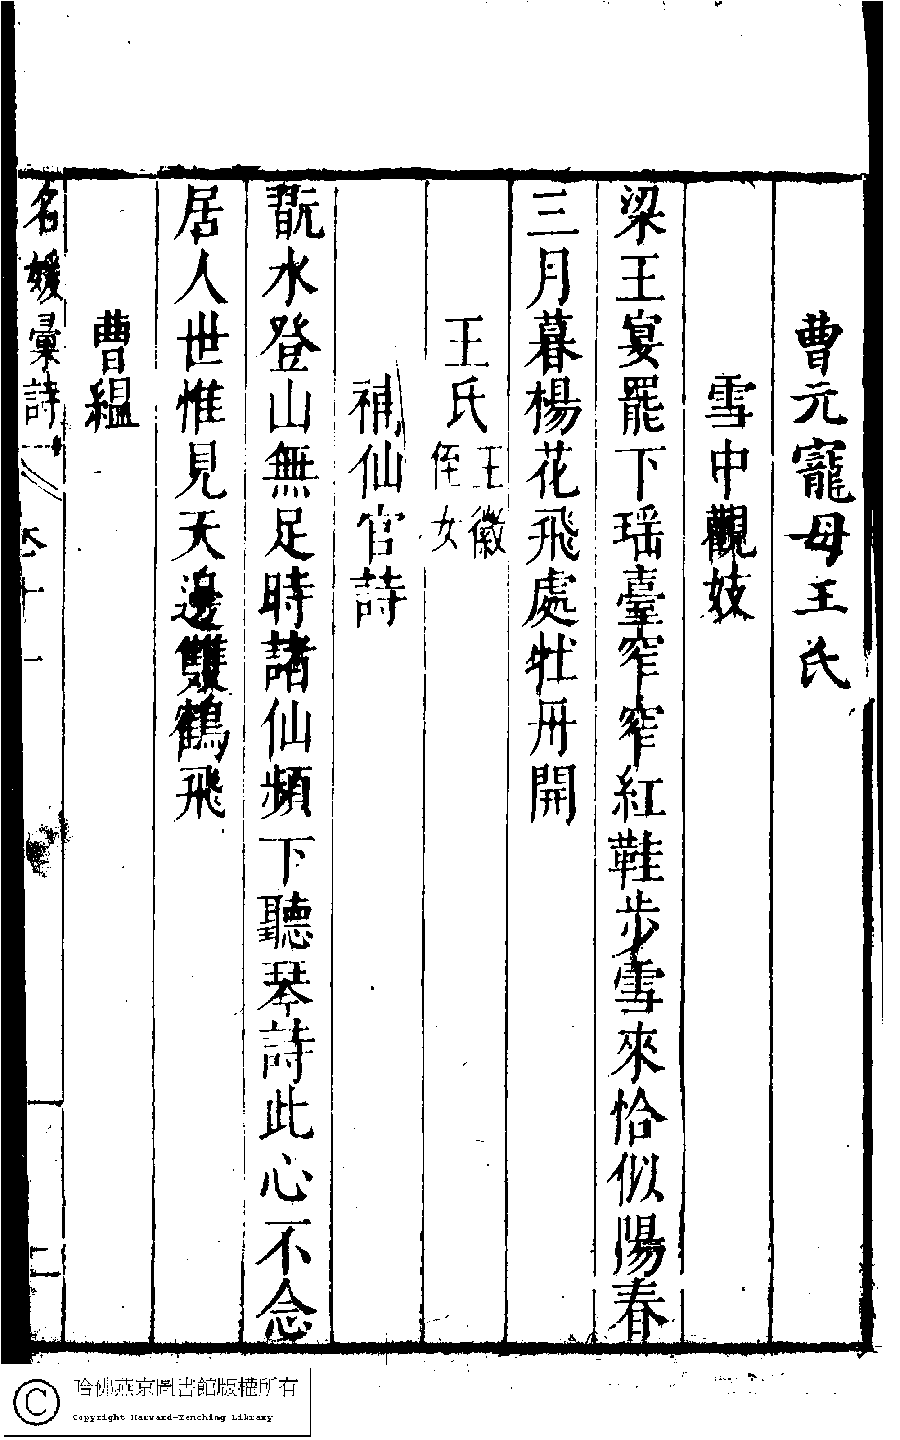 曹元寵母王氏
雪中觀妓
梁王宴罷下瑶臺窄窄紅鞋步雪來恰似陽春
三月暮楊花飛處牡丹開
王氏 王徽侄女
補仙官詩
翫水登山無足時諸仙頻下聽琴詩此心不念
居人世惟見天邊雙鶴飛
曹緼
名媛彙詩 卷十一 二
哈佛燕京圖書館版權所有
Copyright Harvard-Yenching Library